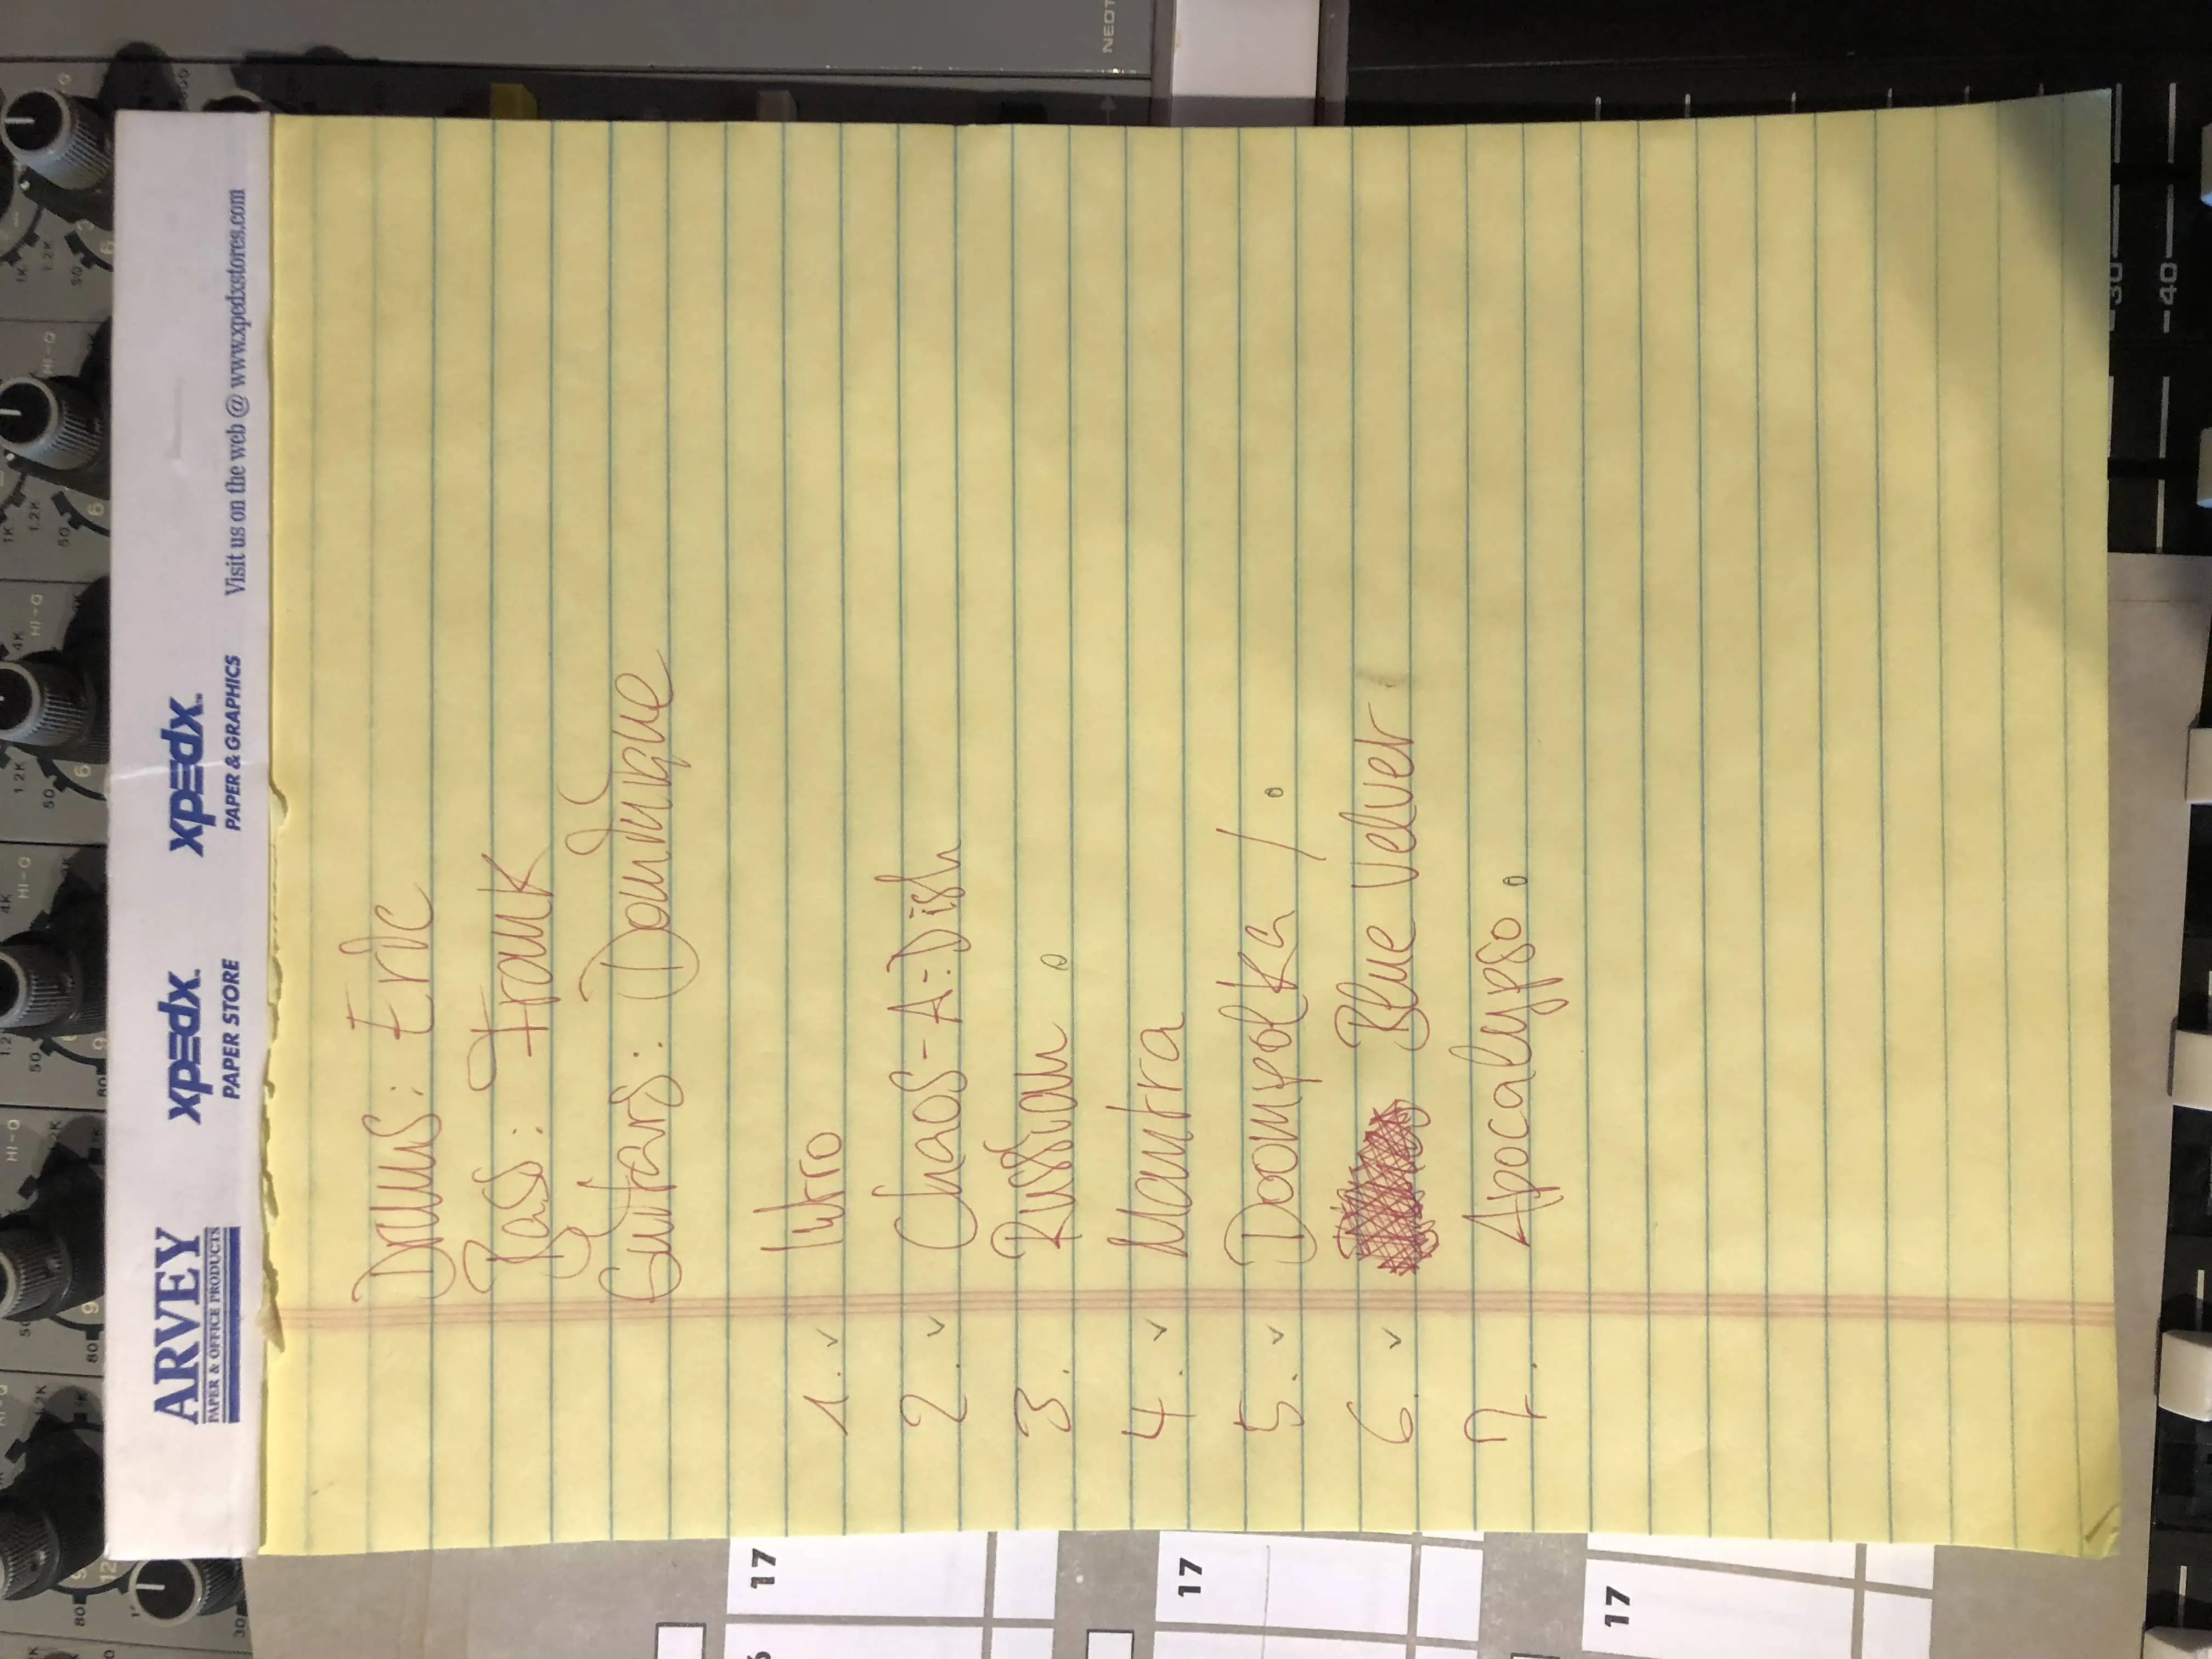 ARVEY
PAPER & OFFICE PRODUCTS
xpedx™
PAPER STORE
xpedx™
PAPER & GRAPHICS
Visit us on the web @ www.xpedxstores.com
Drums: Eric
Bass: Frank
Guitars: Dominique
1. ✓ Intro
2. ✓ Chaos-A-Dish
3. Russian
4. ✓ Mantra
5. ✓ Doompolka /.
6. ✓ Blue Velvet.
7. Apocalypso.
17
17
17
-30
-40
HI-Q
HI-Q
HI-Q
HI-Q
HI-Q